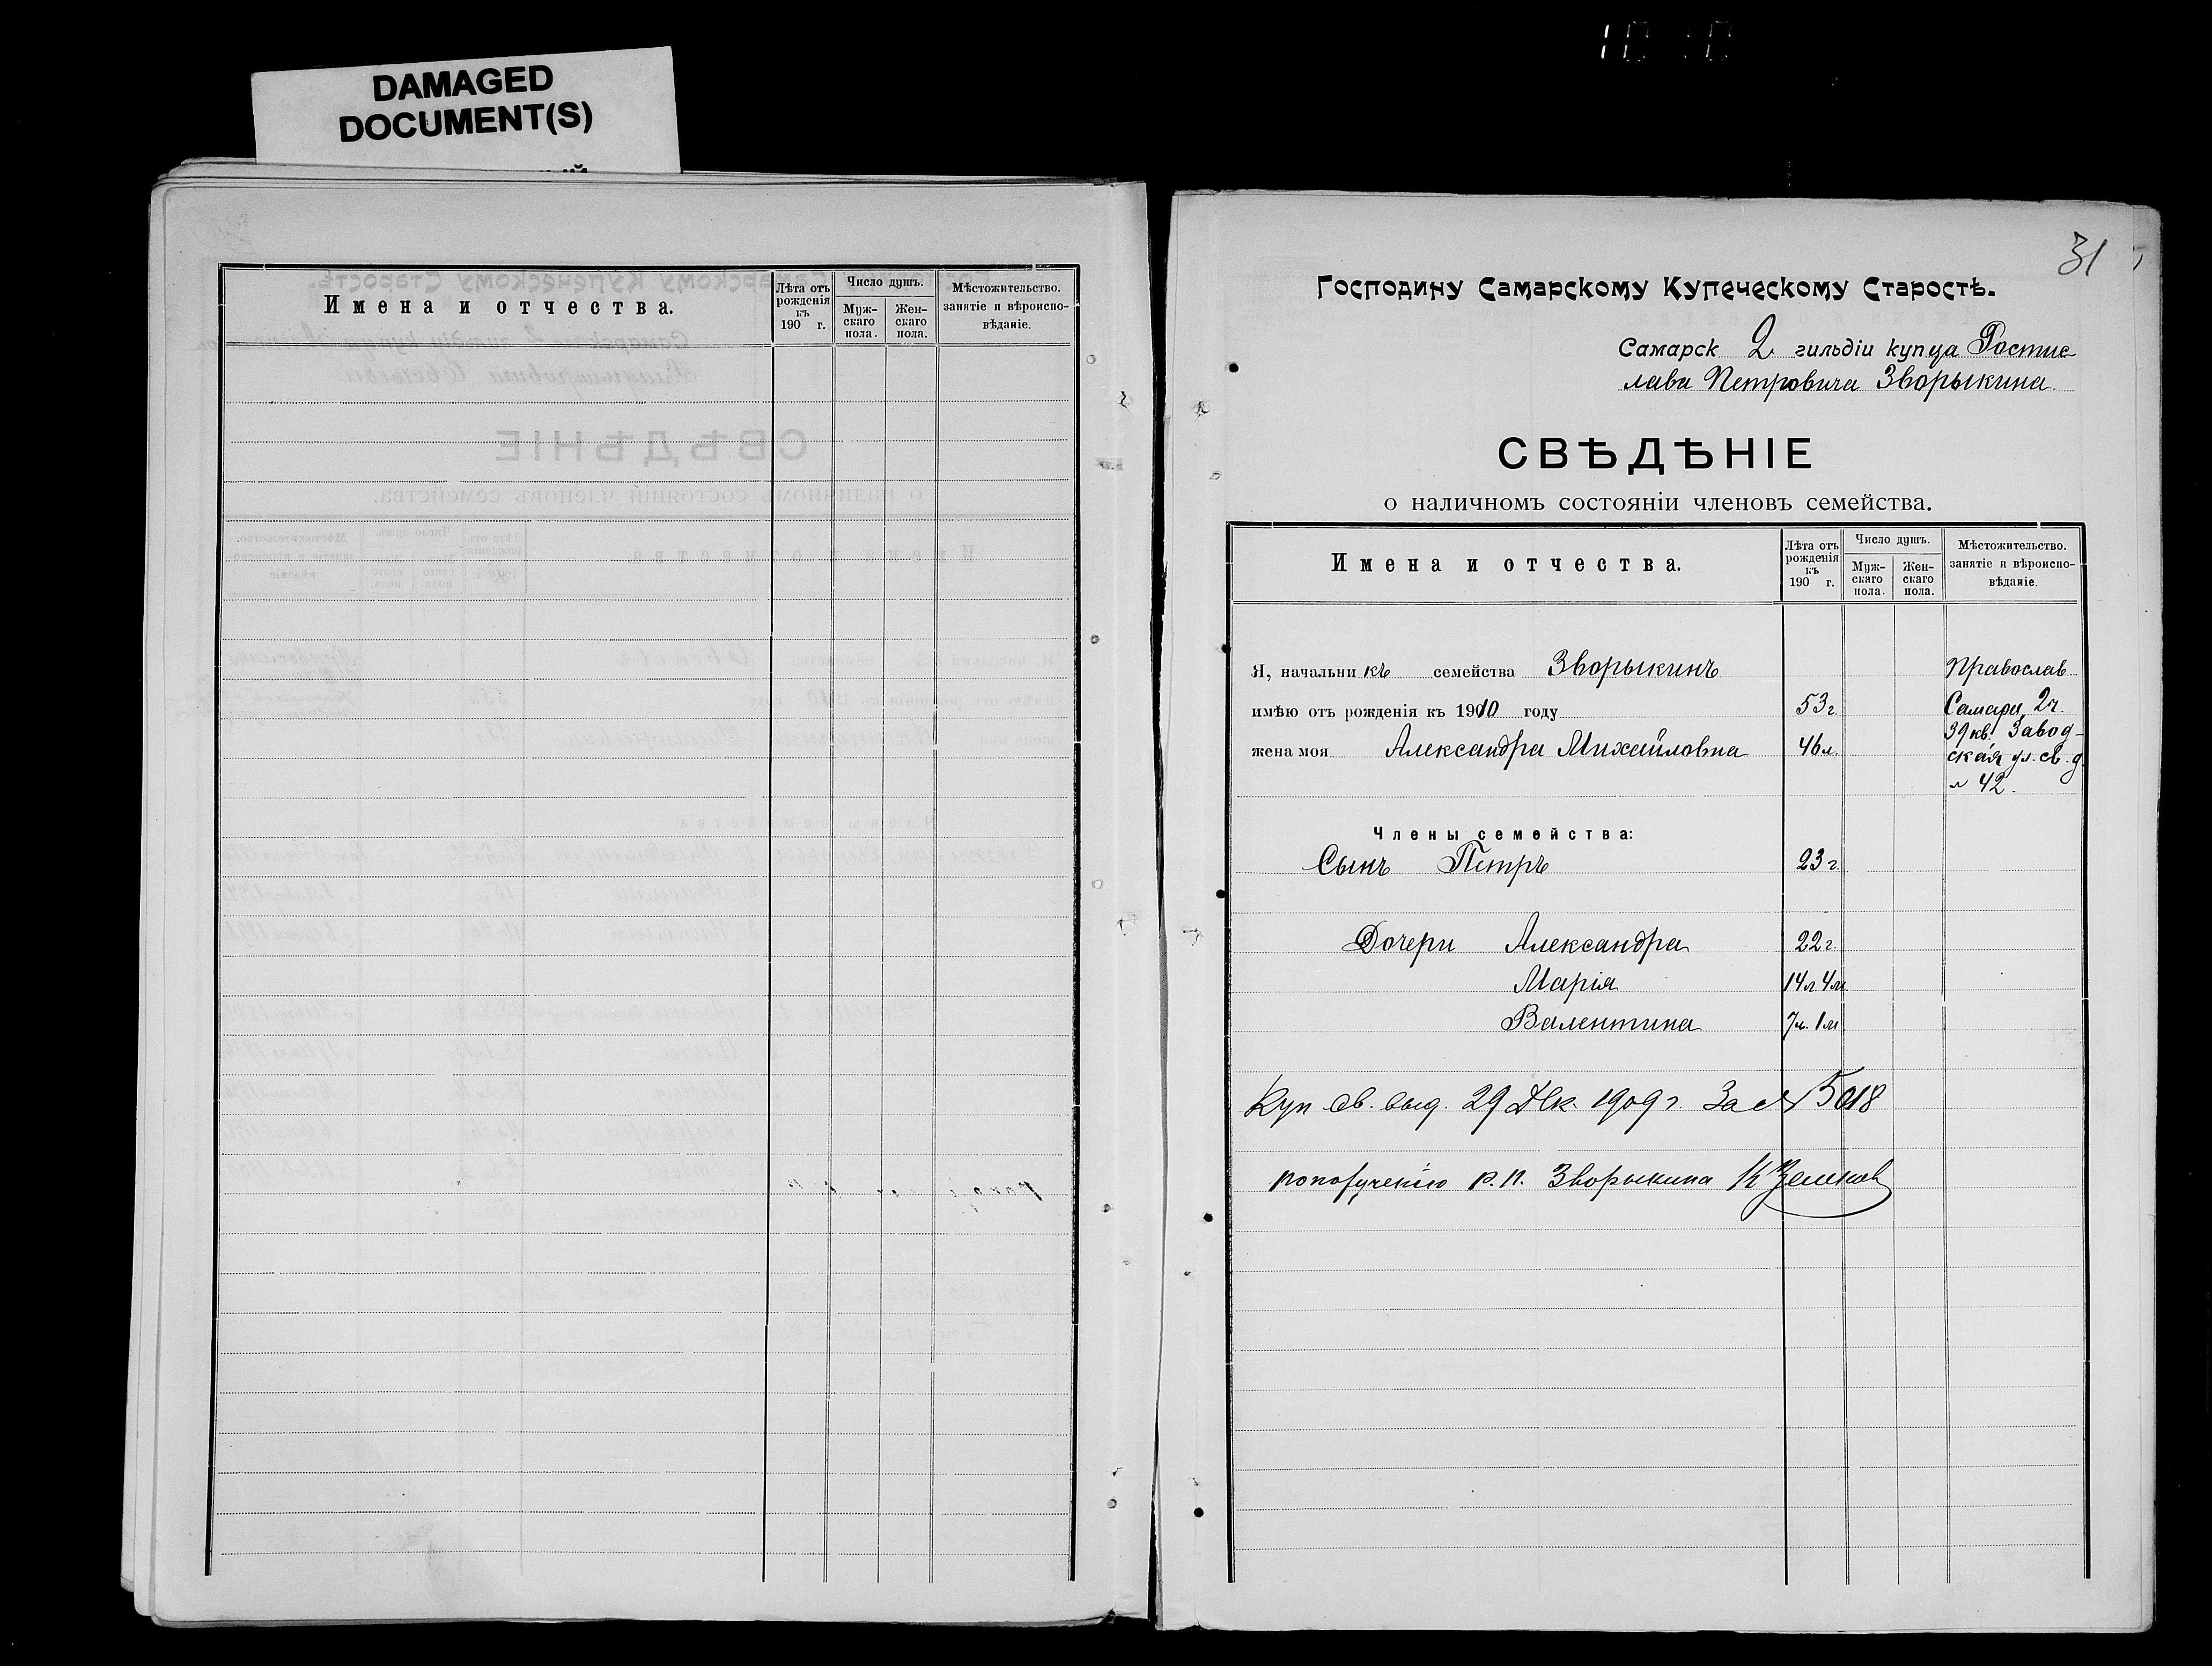 DAMAGED
DOCUMENT(S)
Имена и отчества.
Лѣта отъ рожденія къ 190 г.
Число душъ.
Муж-скаго пола.
Жен-скаго пола.
Мѣстожительство. занятіе и вѣроиспо-вѣданіе.
31
Господину Самарскому Купеческому Старостѣ.
Самарск 2 гильдіи купца Ростис
лава Петровича Зворыкина.
СВѢДѢНІЕ
о наличномъ состояніи членовъ семейства.
Имена и отчества.
Лѣта отъ рожденія къ 190 г.
Число душъ.
Муж-скаго пола.
Жен-скаго пола.
Мѣстожительство. занятіе и вѣроиспо-вѣданіе.
Я, начальникъ семейства Зворыкинъ Православ
имѣю отъ рожденія къ 1910 году 53 г. Самара, 2 ч.
39 кв. Завод-
жена моя Александра Михайловна 46 л. ская ул. св. д.
№ 42.
Члены семейства:
Сынъ Петръ 23 г.
Дочери Александра 22 г.
Марія 14 л 4 м
Валентина 7 л. 1 м
Куп св. выд. 29 Дек. 1909 г. За № 5018
по порученію Р. П. Зворыкина К